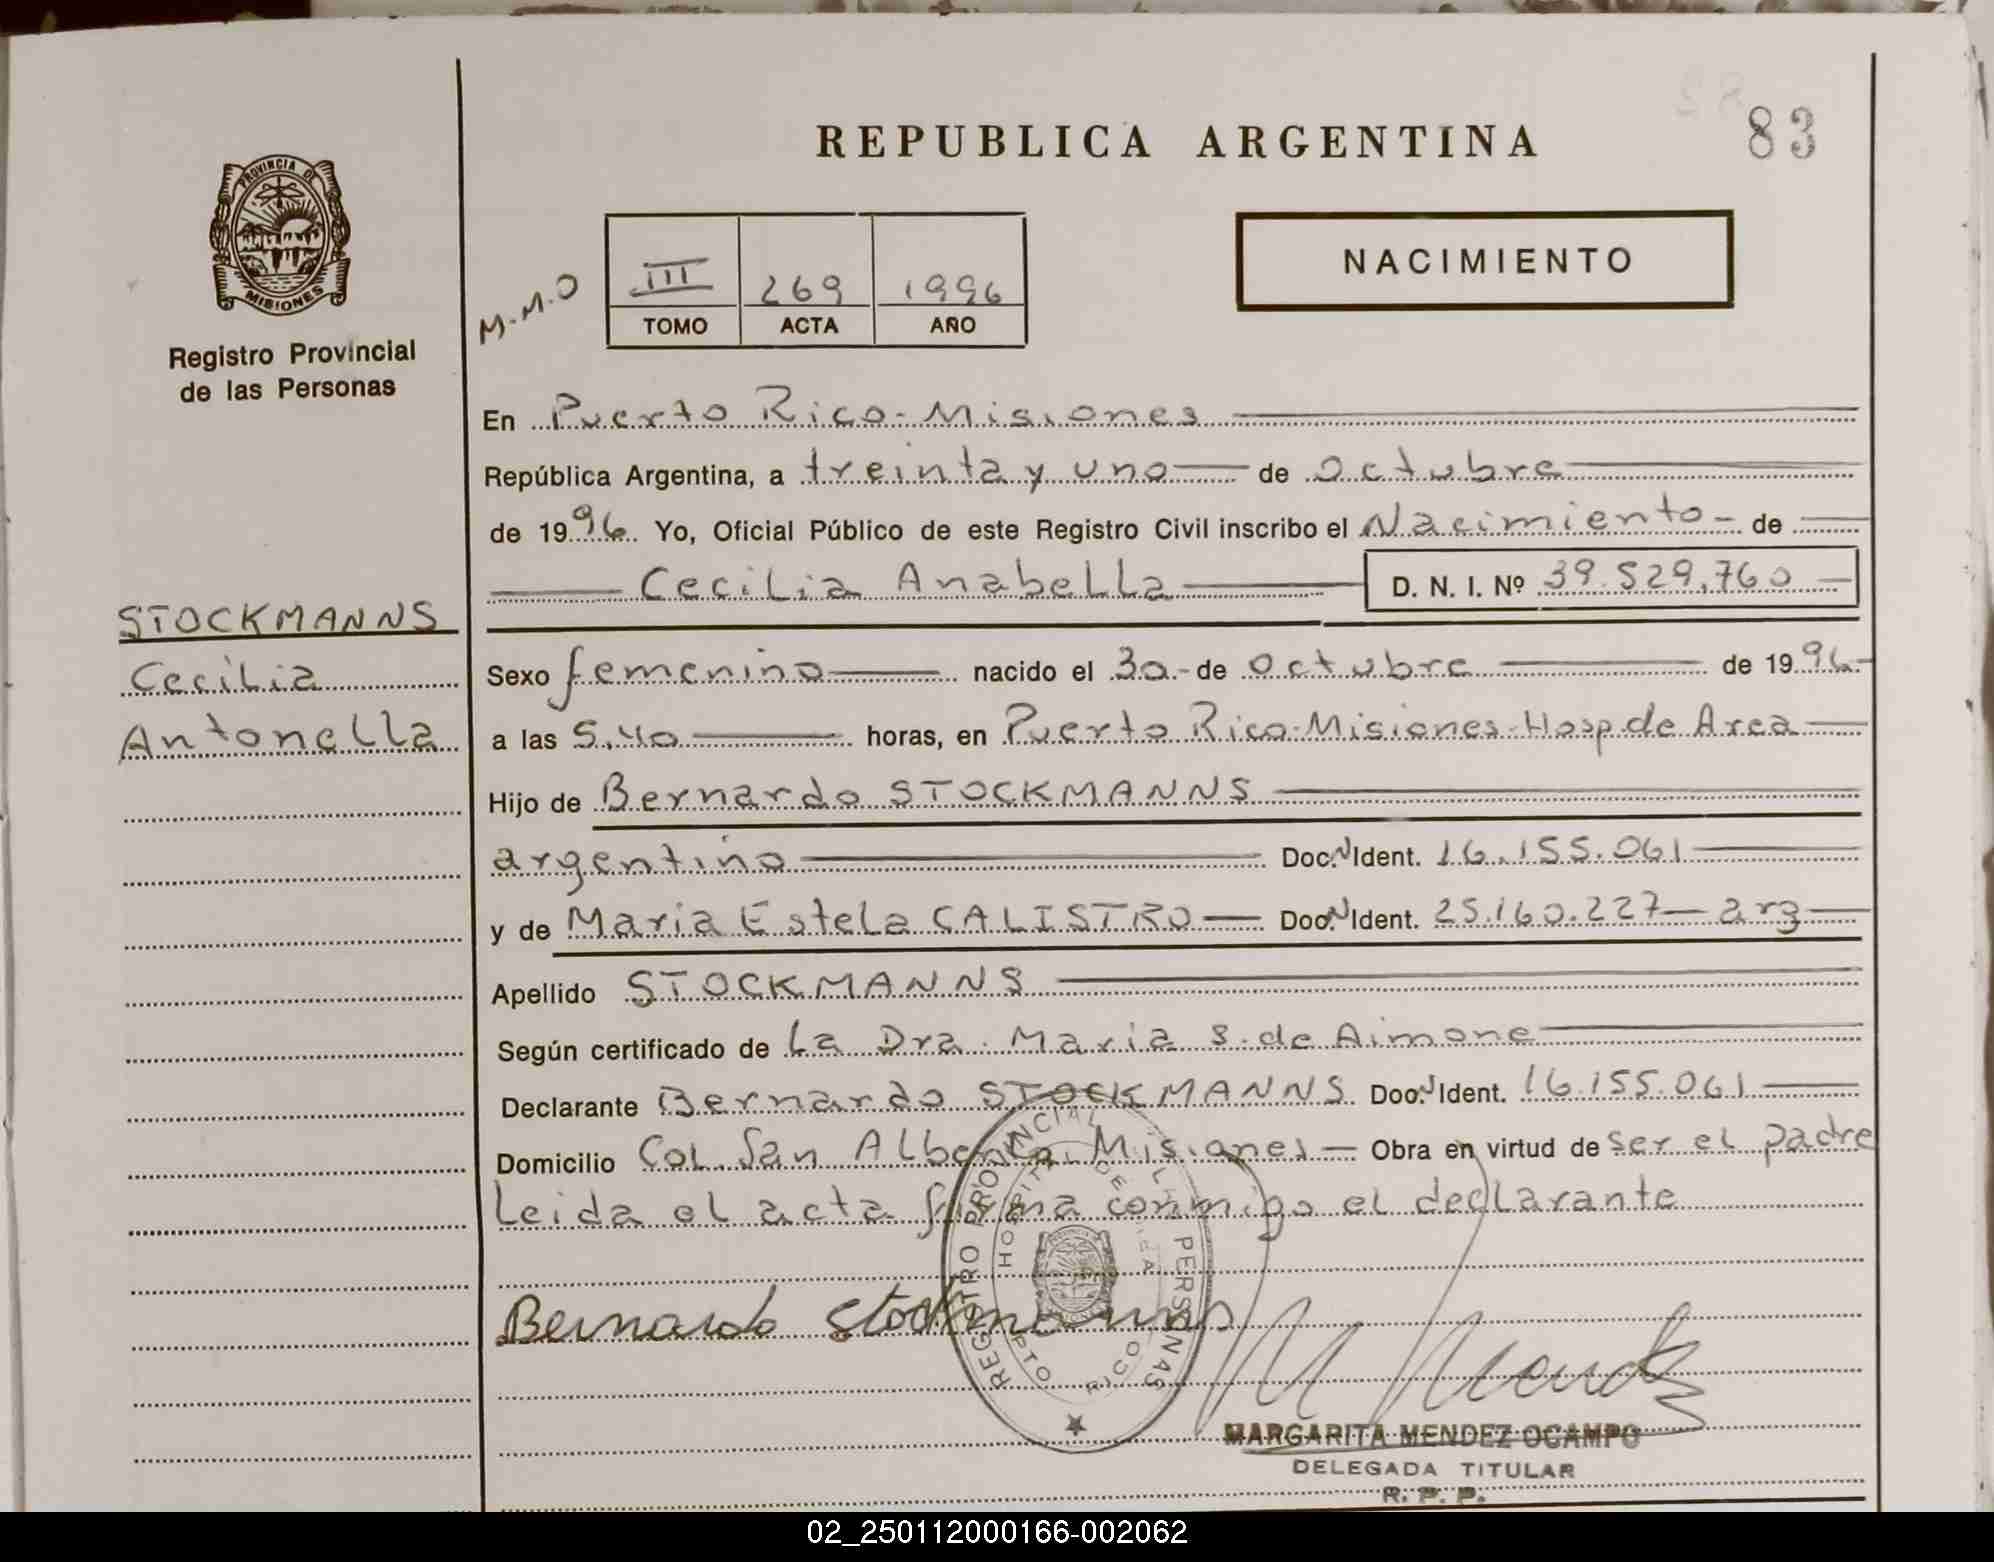 83
REPUBLICA ARGENTINA
PROVINCIA DE
MISIONES
NACIMIENTO
M.M.O
III 269 1996
TOMO ACTA AÑO
Registro Provincial
de las Personas
En Puerto Rico-Misiones
República Argentina, a treinta y uno de Octubre
de 1996. Yo, Oficial Público de este Registro Civil inscribo el Nacimiento- de
Cecilia Anabella D. N. I. Nº 39.529.760
STOCKMANNS
Cecilia
Antonella
Sexo femenino nacido el 30- de Octubre de 1996-
a las 5.40 horas, en Puerto Rico-Misiones-Hosp.de Area
Hijo de Bernardo STOCKMANNS
argentino Doc. N Ident. 16.155.061
y de Maria Estela CALISTRO Doc. N Ident. 25.160.227- arg
Apellido STOCKMANNS
Según certificado de La Dra. Maria S. de Aimone
Declarante Bernardo STOCKMANNS Doc. N Ident. 16.155.061
Domicilio Col. San Alberto. Misiones- Obra en virtud de ser el padre
Leida el acta firma conmigo el declarante
REGISTRO PROVINCIAL PERSONAS
PTO RICO
Bernardo Stockmanns
MARGARITA MENDEZ OCAMPO
DELEGADA TITULAR
R. P. P.
02_250112000166-002062